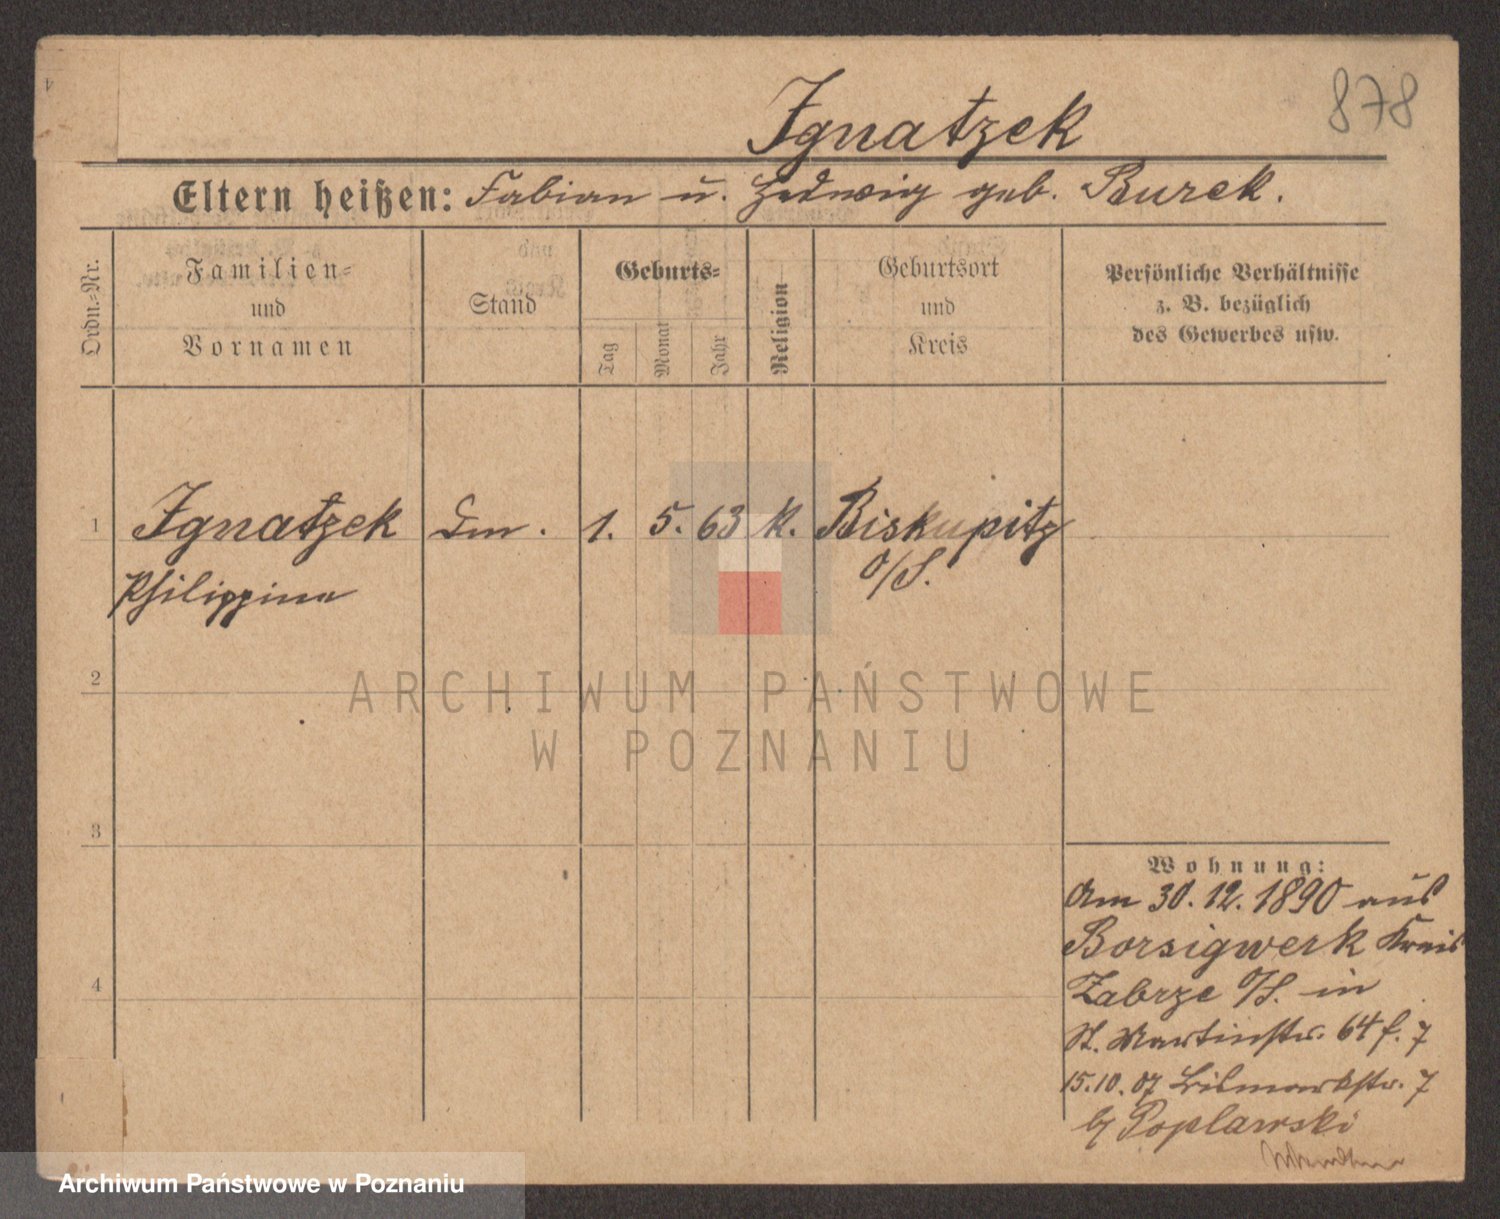 878
Ignatzek
Eltern heißen: Fabian u. Hedwig geb. Burek.
Ordn.-Nr.
Familien-
und
Vornamen
Stand
Geburts-
Tag
Monat
Jahr
Religion
Geburtsort
und
Kreis
Persönliche Verhältnisse
z. B. bezüglich
des Gewerbes usw.
1 Ignatzek 1. 5. 63 k. Biskupitz
Philippine O/S.
2
3
4
Wohnung:
Am 30.12.1890 aus
Borsigwerk Kreis
Zabrze O/S. in
St. Martinstr. 64 f. 7
15.10.07 Bismarckstr. 7
b/ Poplawski
ARCHIWUM PAŃSTWOWE
W POZNANIU
Archiwum Państwowe w Poznaniu